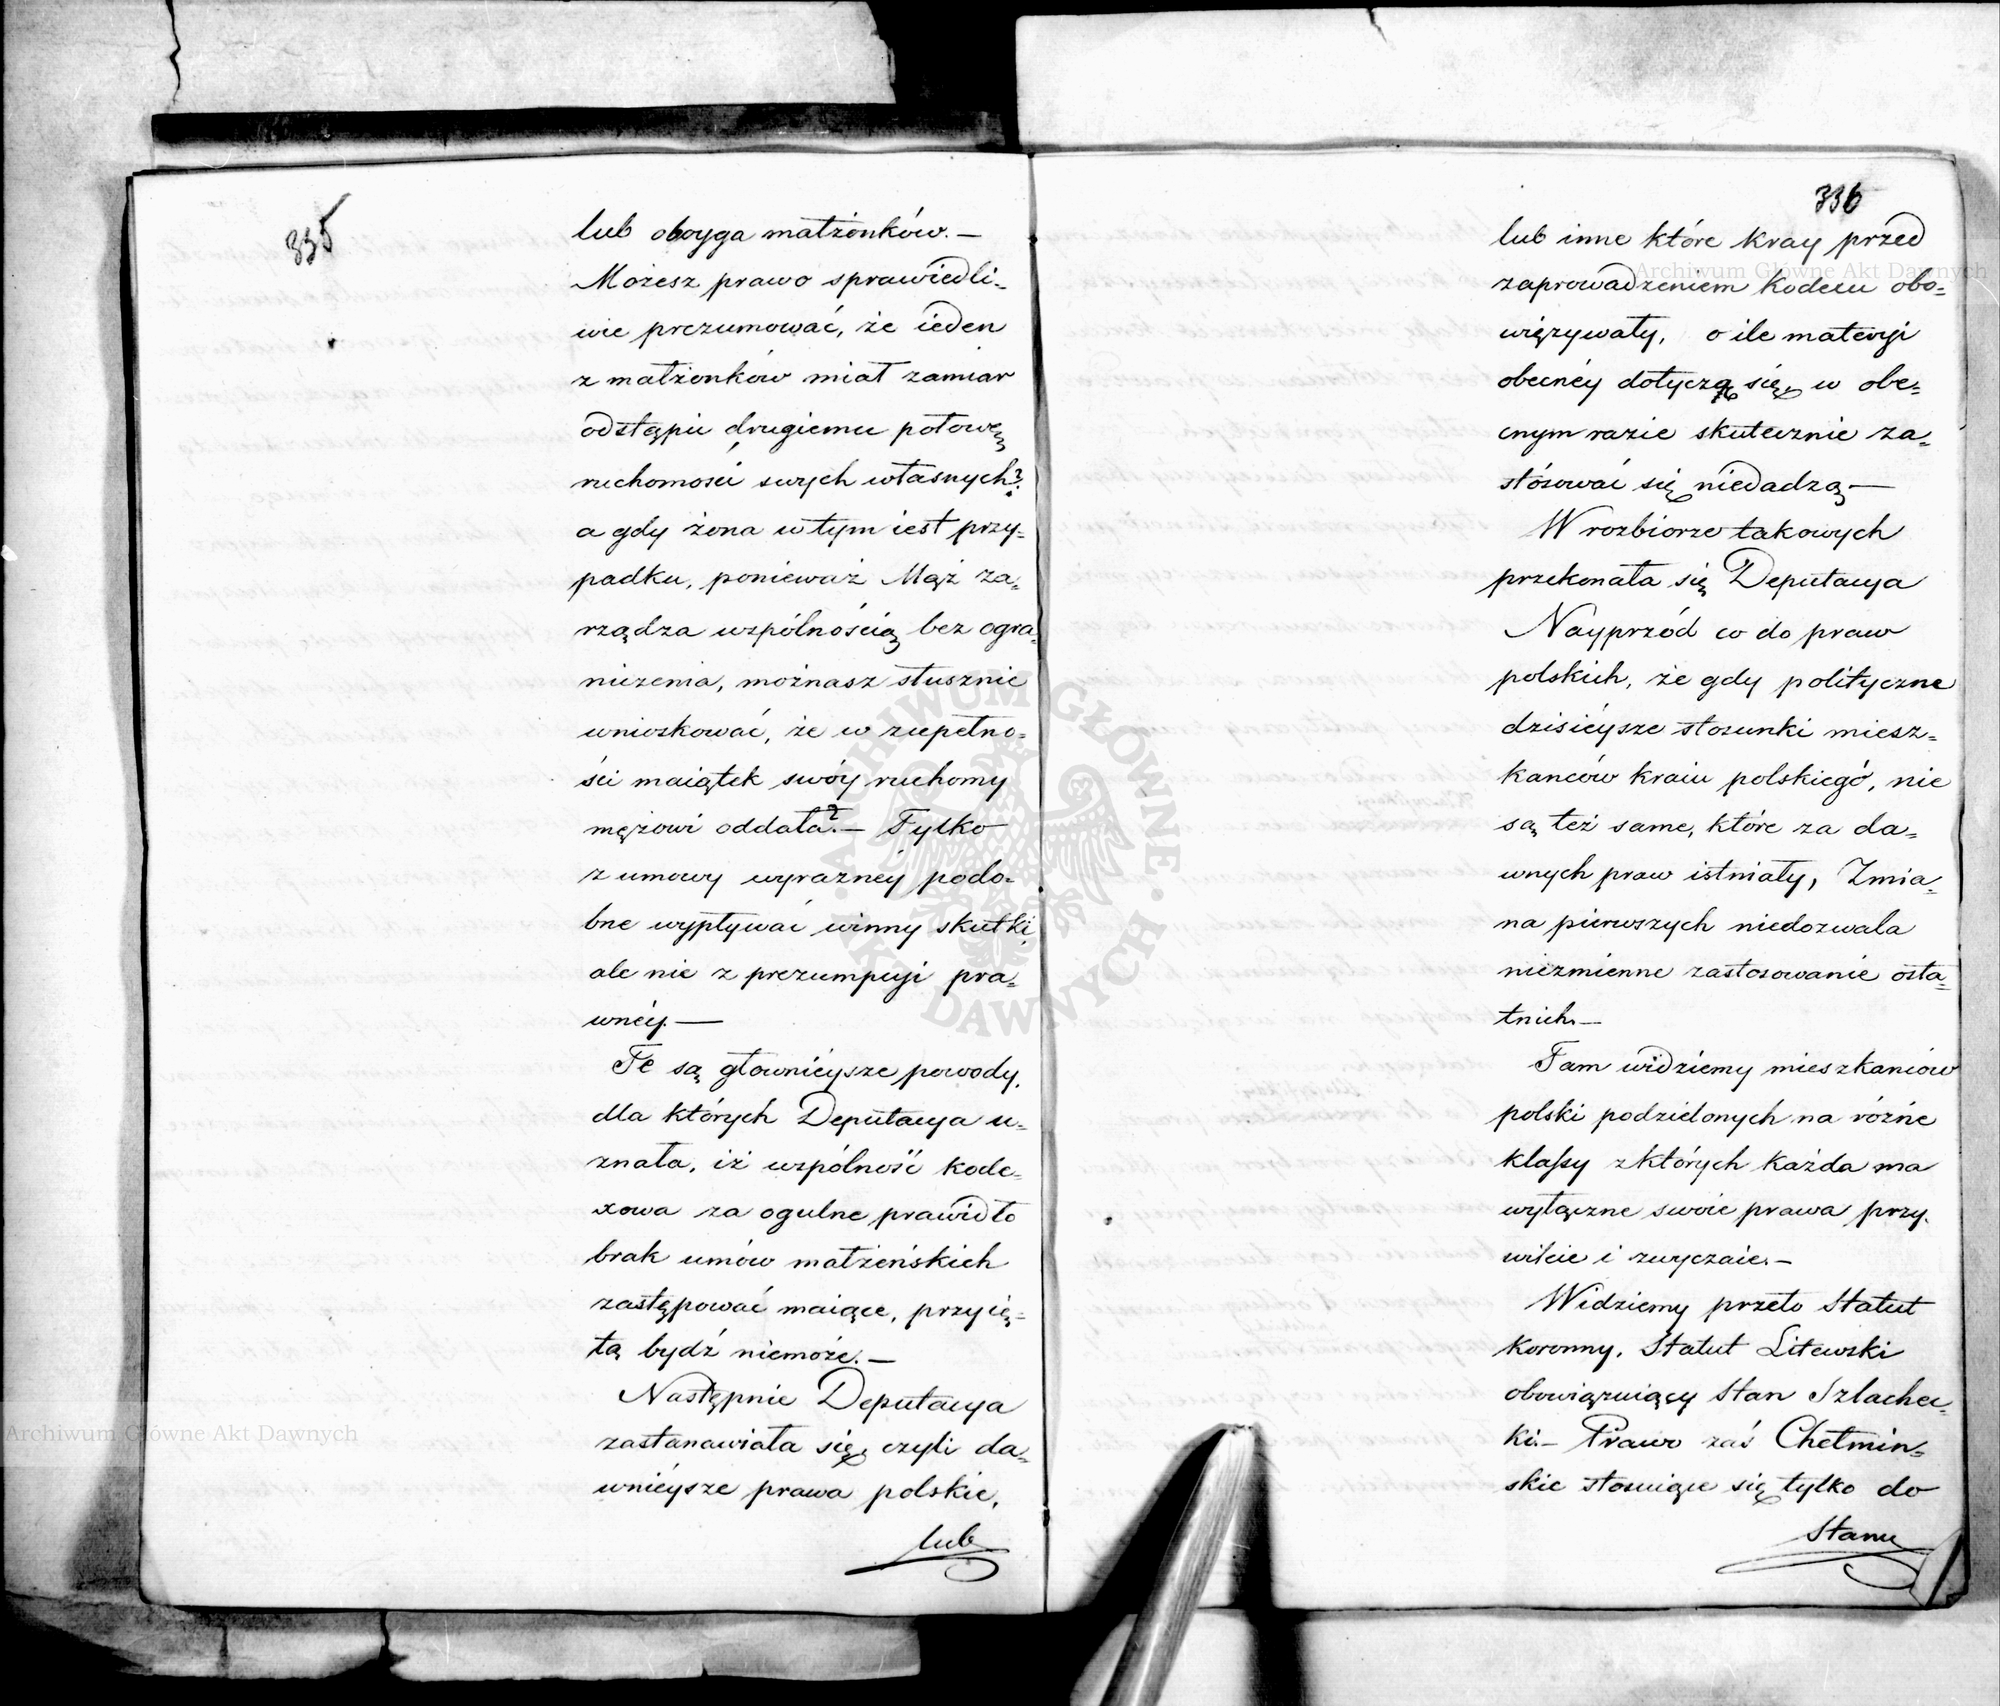 335
lub oboyga małżonków. —
Możesz prawo sprawiedli-
wie prezumować, że ieden
z małżonków miał zamiar
odstąpić drugiemu połowę
ruchomości swych własnych?
a gdy żona w tym iest przy-
padku, ponieważ Mąż za-
rządza wspólnością bez ogra-
niczenia, możnasz słusznie
wnioskować, że w zupełno-
ści maiątek swóy ruchomy
mężowi oddała? — Tylko
z umowy wyrazney podo-
bne wypływać winny skutki,
ale nie z prezumpcyi pra-
wnéy. —
Te są głownieysze powody,
dla których Deputacya u-
znała, iż wspólność kode-
xowa za ogulne prawidło
brak umów małżeńskich
zastępować maiące, przyię-
tą bydź niemoże. —
Następnie Deputacya
zastanawiała się, czyli da-
wnieysze prawa polskie,
lub
336
lub inne które kray przed
zaprowadzeniem kodexu obo-
więzywały, o ile materyi
obecnéy dotyczą się, w obe-
cnym razie skutecznie za-
stósować się niedadzą —
W rozbiorze takowych
przekonała się Deputacya
Nayprzód co do praw
polskich, że gdy polityczne
dzisieysze stosunki miesz-
kanców kraiu polskiego, nie
są też same, które za da-
wnych praw istniały, Zmia-
na pierwszych niedozwala
niezmienne zastosowanie osta-
tnich. —
Tam widziemy mieszkańców
polski podzielonych na różne
klassy z których każda ma
wyłączne swoie prawa przy-
wileie i zwyczaie. —
Widziemy przeto Statut
koronny, Statut Litewski
obowiązuiący Stan Szlachec-
ki. — Prawo zaś Chełmin-
skie stosuiące się tylko do
Stanu
Archiwum Główne Akt Dawnych
Archiwum Główne Akt Dawnych
ARCHIWUM GŁÓWNE AKT DAWNYCH